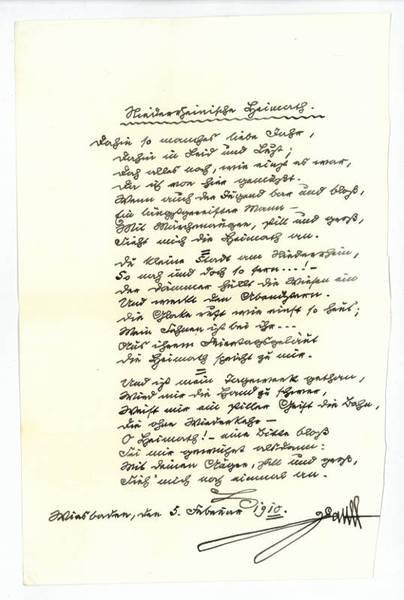 Niederrheinische Heimath.
Dahin so manches liebe Jahr,
Dahin in Leid und Lust;
Doch alles noch, wie einst es war,
Da ich von hier gemußt.
Wenn auch der Jugend bar und bloß,
Ein längstgereifter Mann –
Mit Märchenaugen, still und groß,
Sieht mich die Heimath an.
Du kleine Stadt am Niederrhein,
So nah und doch so fern...! –
Der Dämmer hüllt die Wiesen ein
Und weckt den Abendstern.
Die Glocke ruft wie einst so heut;
Mein Sehnen ist bei ihr...
Aus ihrem Feiertagsgeläut
Die Heimath spricht zu mir.
Und ist mein Tagewerk gethan,
Wird mir die Hand zu schwer,
Weist mir ein stiller Geist die Bahn,
Die ohne Wiederkehr –
O Heimath! – eine Bitte bloß
Sei mir gewährt alsdann:
Mit deinen Augen, still und groß,
Sieh' mich noch einmal an.
Wiesbaden, den 5. Februar 1910.